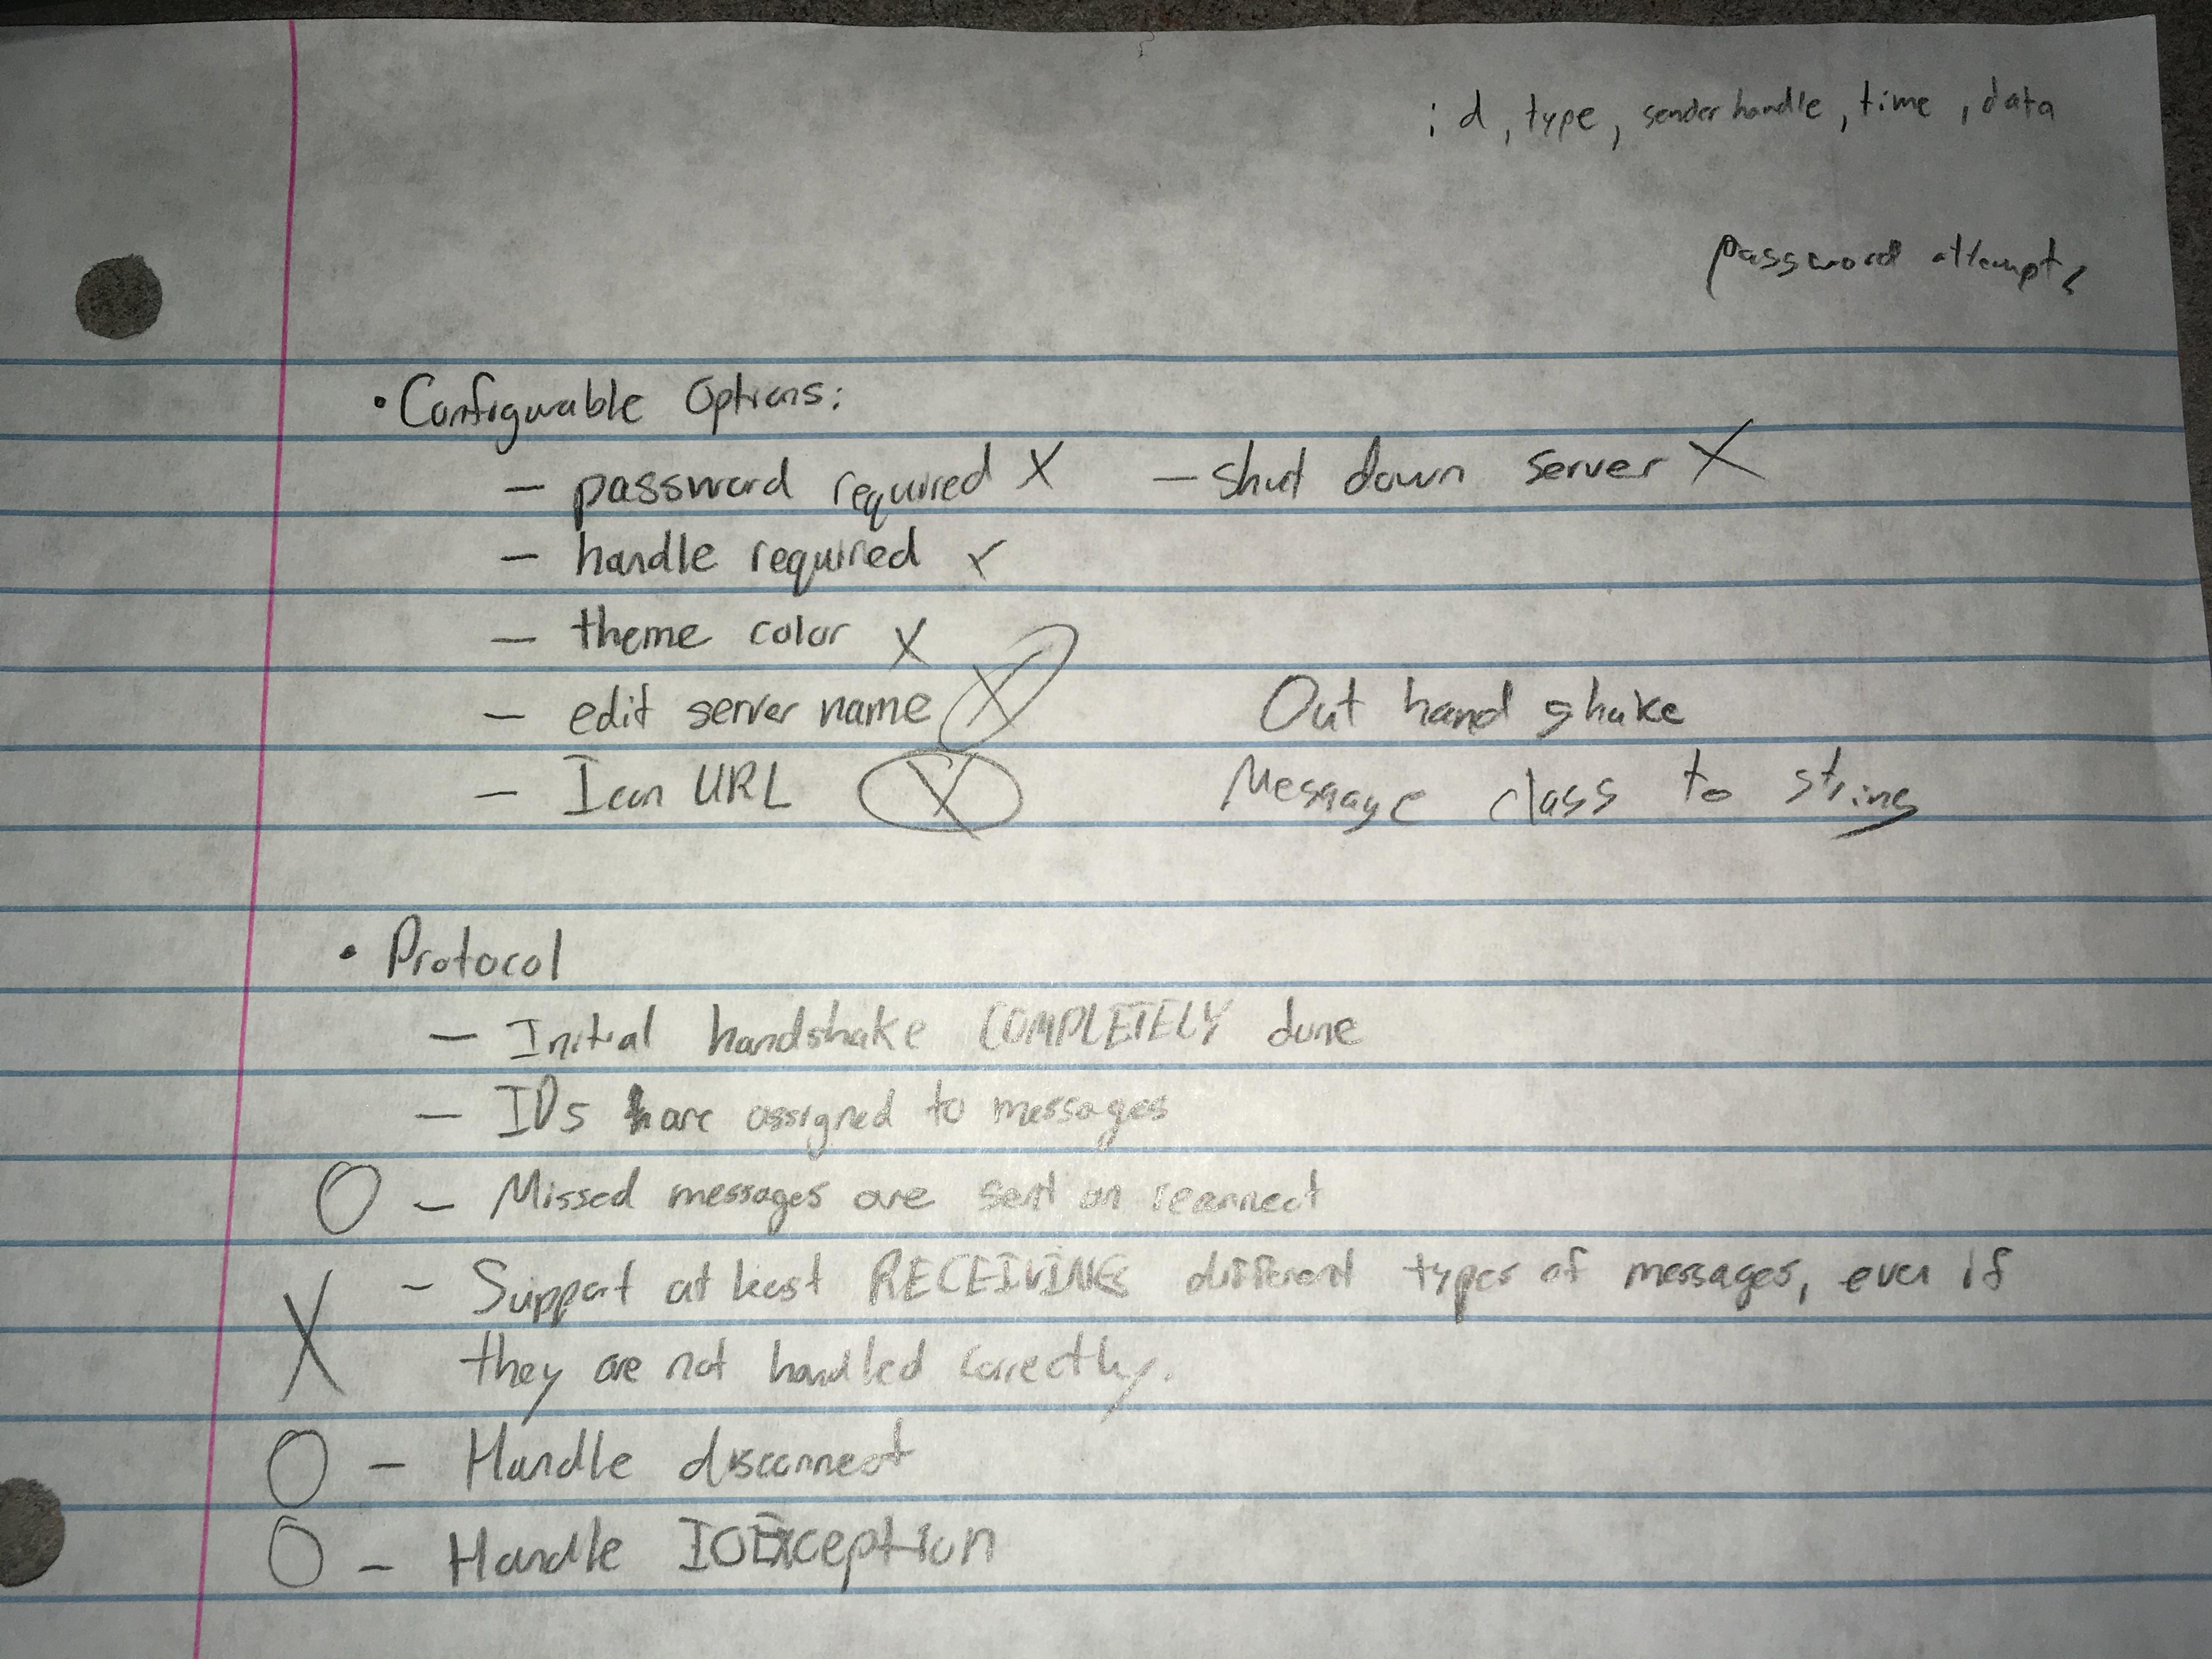 id, type, sender handle, time, data
password attempts
• Configurable Options:
— password required X — shut down server X
— handle required x
— theme color X
— edit server name X
Out hand shake
— Icon URL X
Message class to string
• Protocol
— Initial handshake COMPLETELY done
— IDs are assigned to messages
O — Missed messages are sent on reconnect
X — Support at least RECEIVING different types of messages, even if
they are not handled correctly.
O — Handle disconnect
O — Handle IOException